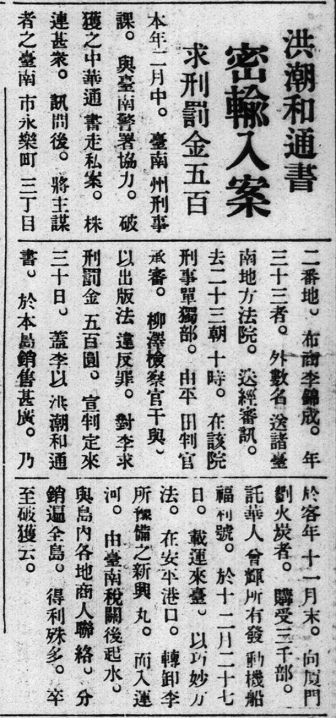 洪潮和通書
密輸入案
求刑罰金五百
本年二月中。臺南州刑事
課。與臺南警署協力。破
獲之中華通書走私案。株
連甚衆。訊問後。將主謀
者之臺南市永樂町三丁目
二番地。布商李錦成。年
三十三者。外數名送諸臺
南地方法院。迭經審訊。
去二十三朝十時。在該院
刑事單獨部。由平田判官
承審。柳澤檢察官干與。
以出版法違反罪。對李求
刑罰金五百圓。宣判定來
三十日。蓋李以洪潮和通
書。於本島銷售甚廣。乃
於客年十一月末。向厦門
劉火炭者。購受三千部。
託華人曾輝所有發動機船
福利號。於十二月二十七
日。載運來臺。以巧妙方
法。在安平港口。轉卸李
所豫備之新興丸。而入運
河。由臺南稅關後起水。
與島內各地商人聯絡。分
銷遍全島。得利殊多。卒
至破獲云。